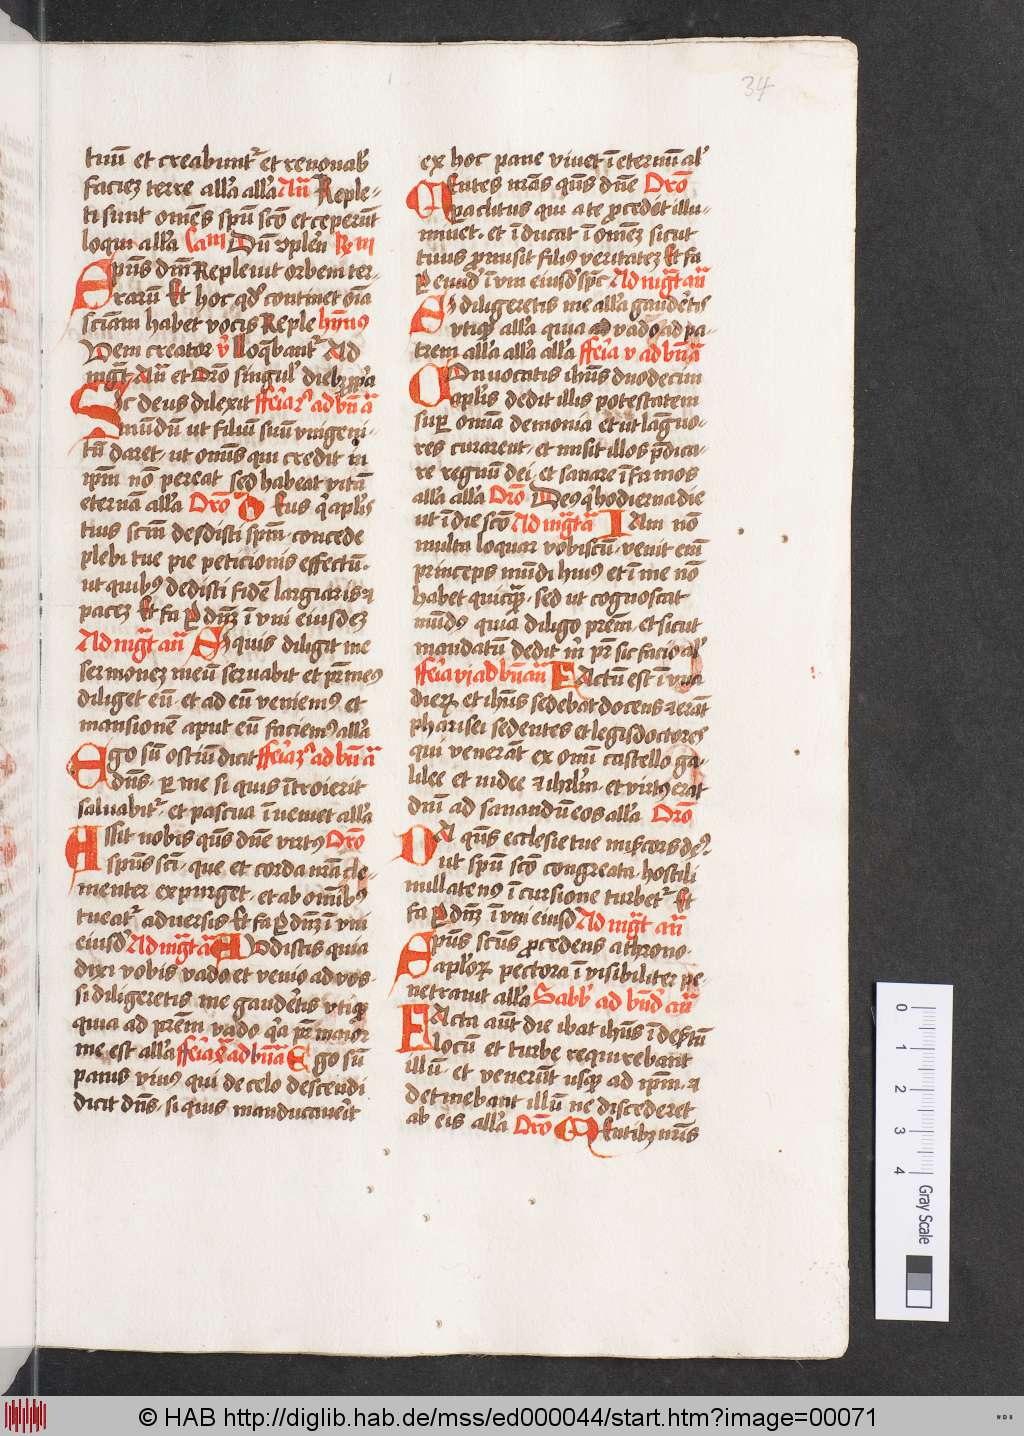 34
tuū et creabunt᷑ et renouab᷑
faciez terre all᷑a all᷑a Añ Reple-
ti sunt om̄es sp̄u sc̄o et ceperūt
loqui all᷑a Dū
Sp̄us dn̄i Repleuit orbem ter-
rarū Et hoc qd᷑ continet oīa
sciam habet vocis Reple hỹnus
Veni creator v᷑ Loq̄bant᷑ Ad
mgt̄ Añ et Oro singul᷑ dieb3
Sic deus dilexit ffēia ad bn̄ a᷑
mūdū ut filiū suū vnigeni-
tū daret · ut om̄is qui credit in
ip̄m nō pereat sed habeat vitā
eternā all᷑a Orō Deus q᷑ ap̄lis
tuis sc̄m dedisti sp̄m · concede
plebi tue pie peticionis effectū ·
ut quib9 dedisti fidē largiaris ⁊
pacez Et fa P dn̄z ī vni eiusdez
Ad mḡt añ Si quis diligit me
sermonez meū seruabit et pr̄ me9
diliget eū · et ad eū veniem9 et
mansionē aput eū faciem9 all᷑a
Ego sū ostiū dicit ffēia 3᷑ ad bn̄ a᷑
dn̄s · p me si quis ītroierit
saluabit᷑ · et pascua īueniet all᷑a
Assit nobis qs̄ dn̄e virt9 Orō
sp̄us sc̄i · que et corda nr̄a cle-
menter expurget · et ab om̄ib9
tueat᷑ aduersis Et fa P dn̄z ī vni
eiusd᷑ Ad mḡt a᷑ Audistis quia
dixi vobis vado et venio ad vos ·
si diligeretis me gaudētis vtiq3
quia ad pr̄em vado q᷑a pr̄ maior
me est all᷑a ffēia ad bn̄ a᷑ Ego sū
panis viu9 qui de celo descendi
dicit dn̄s · si quis manducauerit
ex hoc pane viuet ī eternū al᷑
Mentes nr̄as qs̄ dn̄e Orō
paclitus qui a te procedet illu-
minet · et īducat ī om̄ez sicut
tuus promisit filius veritatez Et fa
P eund᷑ ī vni eiusd᷑ Ad mḡt añ
Si diligeretis me all᷑a gaudētis
vtiq3 all᷑a quia vado ad pa-
trem all᷑a all᷑a all᷑a ffēia v ad bn̄ a᷑
Conuocatis ih̄us duodecim
ap̄lis dedit illis potestatem
sup om̄ia demonia et ut lāguo-
res curarent · et misit illos p̄dica-
re regnū dei · et sanare īfirmos
all᷑a all᷑a Orō Deus q᷑ hodierna die
ut ī die sc̄o Ad mḡt a᷑ Iam nō
multa loquar vobiscū · venit enī
princeps mūdi hui9 et ī me nō
habet quicq̄ · sed ut cognoscat
mūd9 quia diligo pr̄em · et sicut
mandatū dedit m᷑ pr̄ sic facio al᷑
ffēia vi ad bn̄ añ Factū est ī vna
dier᷑ et ih̄us sedebat docens ⁊ erāt
pharisei sedentes et legisdoctores
qui venerāt ex om̄i castello ga-
lilee et iudee ⁊ ihrl̄m · et virt9 erat
dn̄i ad sanandū eos all᷑a Orō
Da qs̄ ecclesie tue mi᷑cors de9
ut sp̄u sc̄o congreata · hostili
nullaten9 īcursione turbet᷑ Et
fa P dn̄z ī vni eiusd᷑ Ad mḡt añ
Sp̄us sc̄us procedens a throno ·
ap̄lor᷑ pectora īuisibiliter pe-
netrauit all᷑a Sabb᷑ ad bn̄d᷑ añ
Facta aūt die ibat ih̄us ī desr̄tū
locū et turbe requirebant
illū et venerūt usq3 ad ip̄m · ⁊
detinebant illū ne discederet
ab eis all᷑a Orō Mentib3 nr̄is
0
1
2
3
4
Gray Scale
© HAB http://diglib.hab.de/mss/ed000044/start.htm?image=00071